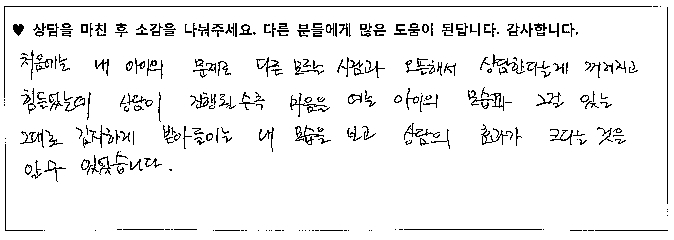 ♥ 상담을 마친 후 소감을 나눠주세요. 다른 분들에게 많은 도움이 된답니다. 감사합니다.
처음에는 내 아이의 문제로 다른 모르는 사람과 오픈해서 상담한다는게 꺼려지고
힘들었는데 상담이 진행될수록 마음을 여는 아이의 모습과 그걸 있는
그대로 감사하게 받아들이는 내 모습을 보고 상담의 효과가 크다는 것을
알수 있었습니다.